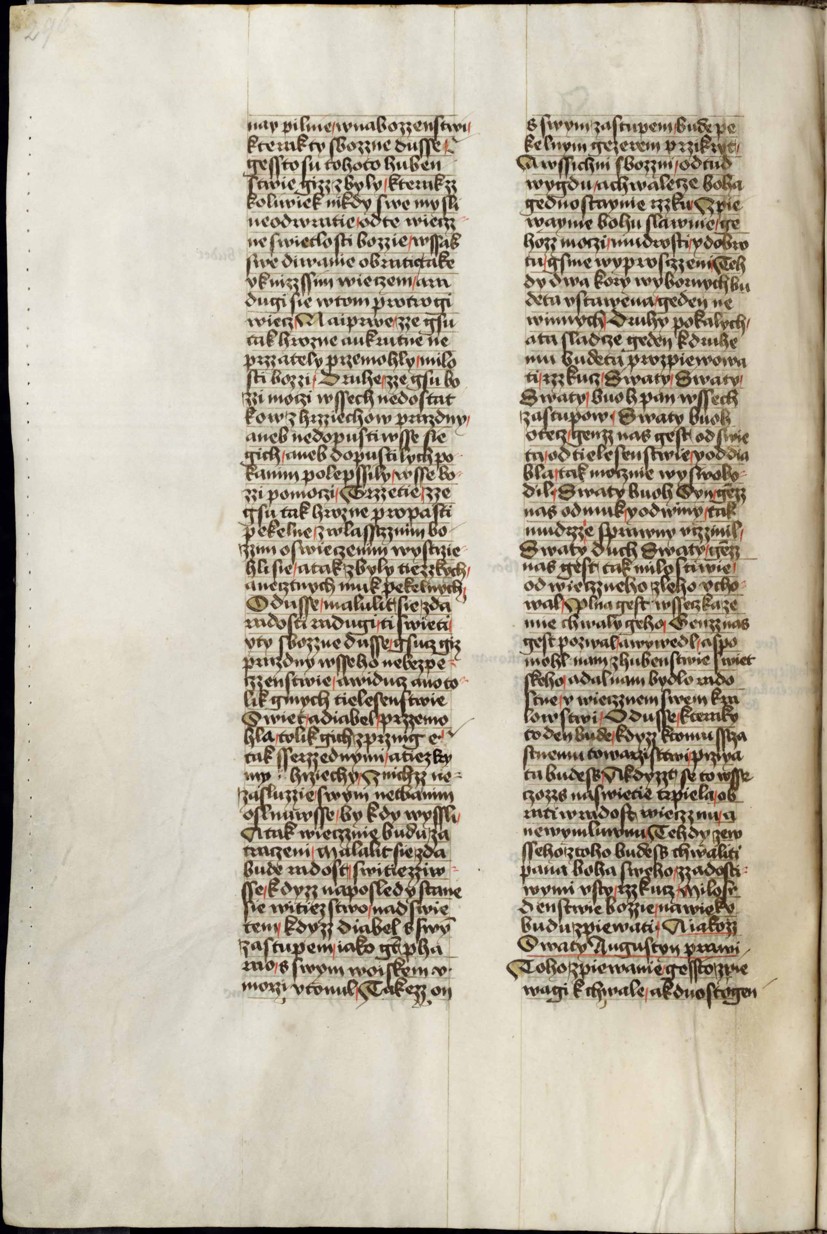 nay pilnie, wnabozzenstwi,
kterakty sbozzne dusse,
gessto su tohoto huben
stwie gizz zbyly, kterakzz
koliwiek nikdy swe mysli
neodwratie, odte wiecz-
ne swietlosti bozzie, wssak
swe diwanie obratie take
vknizssim wieczem, a ra
dugi sie wtom protwogi
wiecz, Naiprwe, zze gsu
tak hrozne aukrutne ne
przately przemohly, milo
sti bozzi, Druhe, zze gsu bo
zzi moczi wssech nedostat
kow z hrziechow prazdny,
aneb nedopustiwsse sie
gich, aneb dopustilych po
kanim polepssily, wsse bo-
zzi pomoczi, Trzzetie, zze
gsu tak hrozne propasti
pekelne, zwlasstznim bo
zzim oswieczenim wystrzie-
hli sie, atak zbyly tiezzkych,
awecznych muk pekelnych,
O dusse, malulit sie zda
radosti radugi, ti swieti,
vty sbozzne dusse, gsucz giz
prazdny wsseho nebezpe-
czzenstwie, awiducz ano to-
lik ginych tielesenstwie
Swiet, adiabel przzemo
hla, tolik gich zprznig e-
tak sserzednymi, atiezky
my hrziechy, Znichzz ne-
zasluzzie, swym nechanim
oslnuwsse, by kdy wyssli,
Atak wiecznie budu za
traczeni, Malalit sie zda
bude radost, switiezziw-
sse, kdyzz naposledy stane
sie witiezstwo, nad swie
tem, kdyzz diabel s swym
zastupem, iako gest pha
rao, s swym woiskem v
morzi vtonul, Takezz on
s swym zastupem, bude pe
kelnym gezerem przikryt,
A wssichni sbozzni, odtud
wygdu, achwalecze boha
gednostaynie rzzku, Zpie
waymie bohu slawnie, ge
hozz moczi, mudrosti, ydobro
tu, gsme wyproszzeni, Teh
dy dwa kory wybornych bu
deta vstawena, geden ne
winnych, Druhy pokalych,
ata sladcze geden kdruhe
mu budeta prozpiewowa
ti, rzzkucz, Swaty, Swaty,
Swaty, buoh pan wssech
zastupow, Swaty buoh
otecz, genzz nas gest od swie
ta, od tielesenstwie, yoddia
bla, tak mocznie wyswobo-
dil, Swaty buoh Syn, genz
nas odmuk, yodwiny, tak
mudrzze sprawny vczinil,
Swaty duch Swaty, genz
nas gest tak milostiwie,
od wieczneho zleho vcho-
wal, Plna gest wsseczka ze
mie chwaly geho, Genzz nas
gest pozwal, awywedl, aspo
mohl nam zhubenstwie swiet
skeho, adal nam bydlo rado
stne, v wiecznem swem kra
lowstwi, O dusse, kteraky
to den bude, kdyzz ktomu ssta
stnemu towarzistwi, przzwa
ta budess, Akdyzz se to wsse
czozs naswietie trpiela, ob
rati wradost wiecznu, a
newymluwnu, Tehdy zew
sseho, ztoho budess chwaliti
pana boha sweho, zzadosti-
wymi vsty, rzzkucz, Milosr
denstwie bozzie, nawieky
budu zpiewati, A iakozz
Swaty Augustyn prawi
Toho zpiewanie, gessto zpie
wagi k chwale, ak duostogen